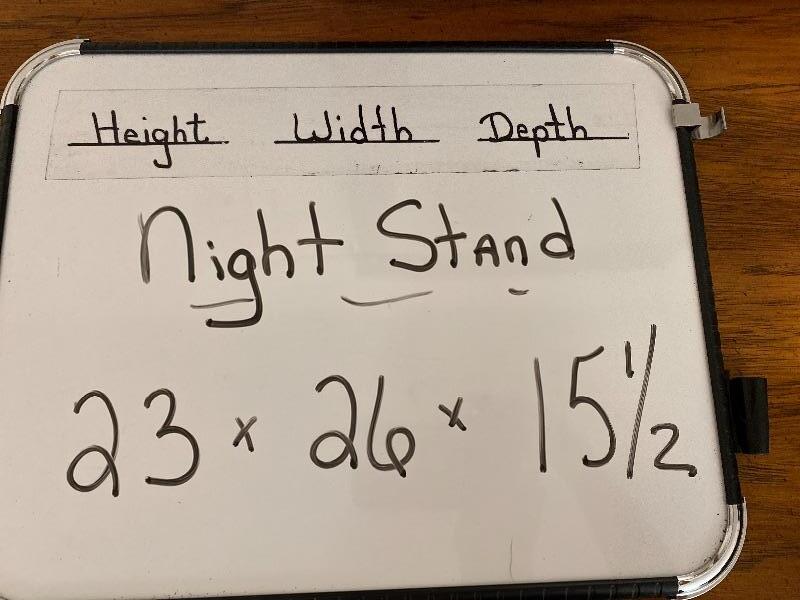 Height Width Depth
Night Stand
23 x 26 x 15 1/2